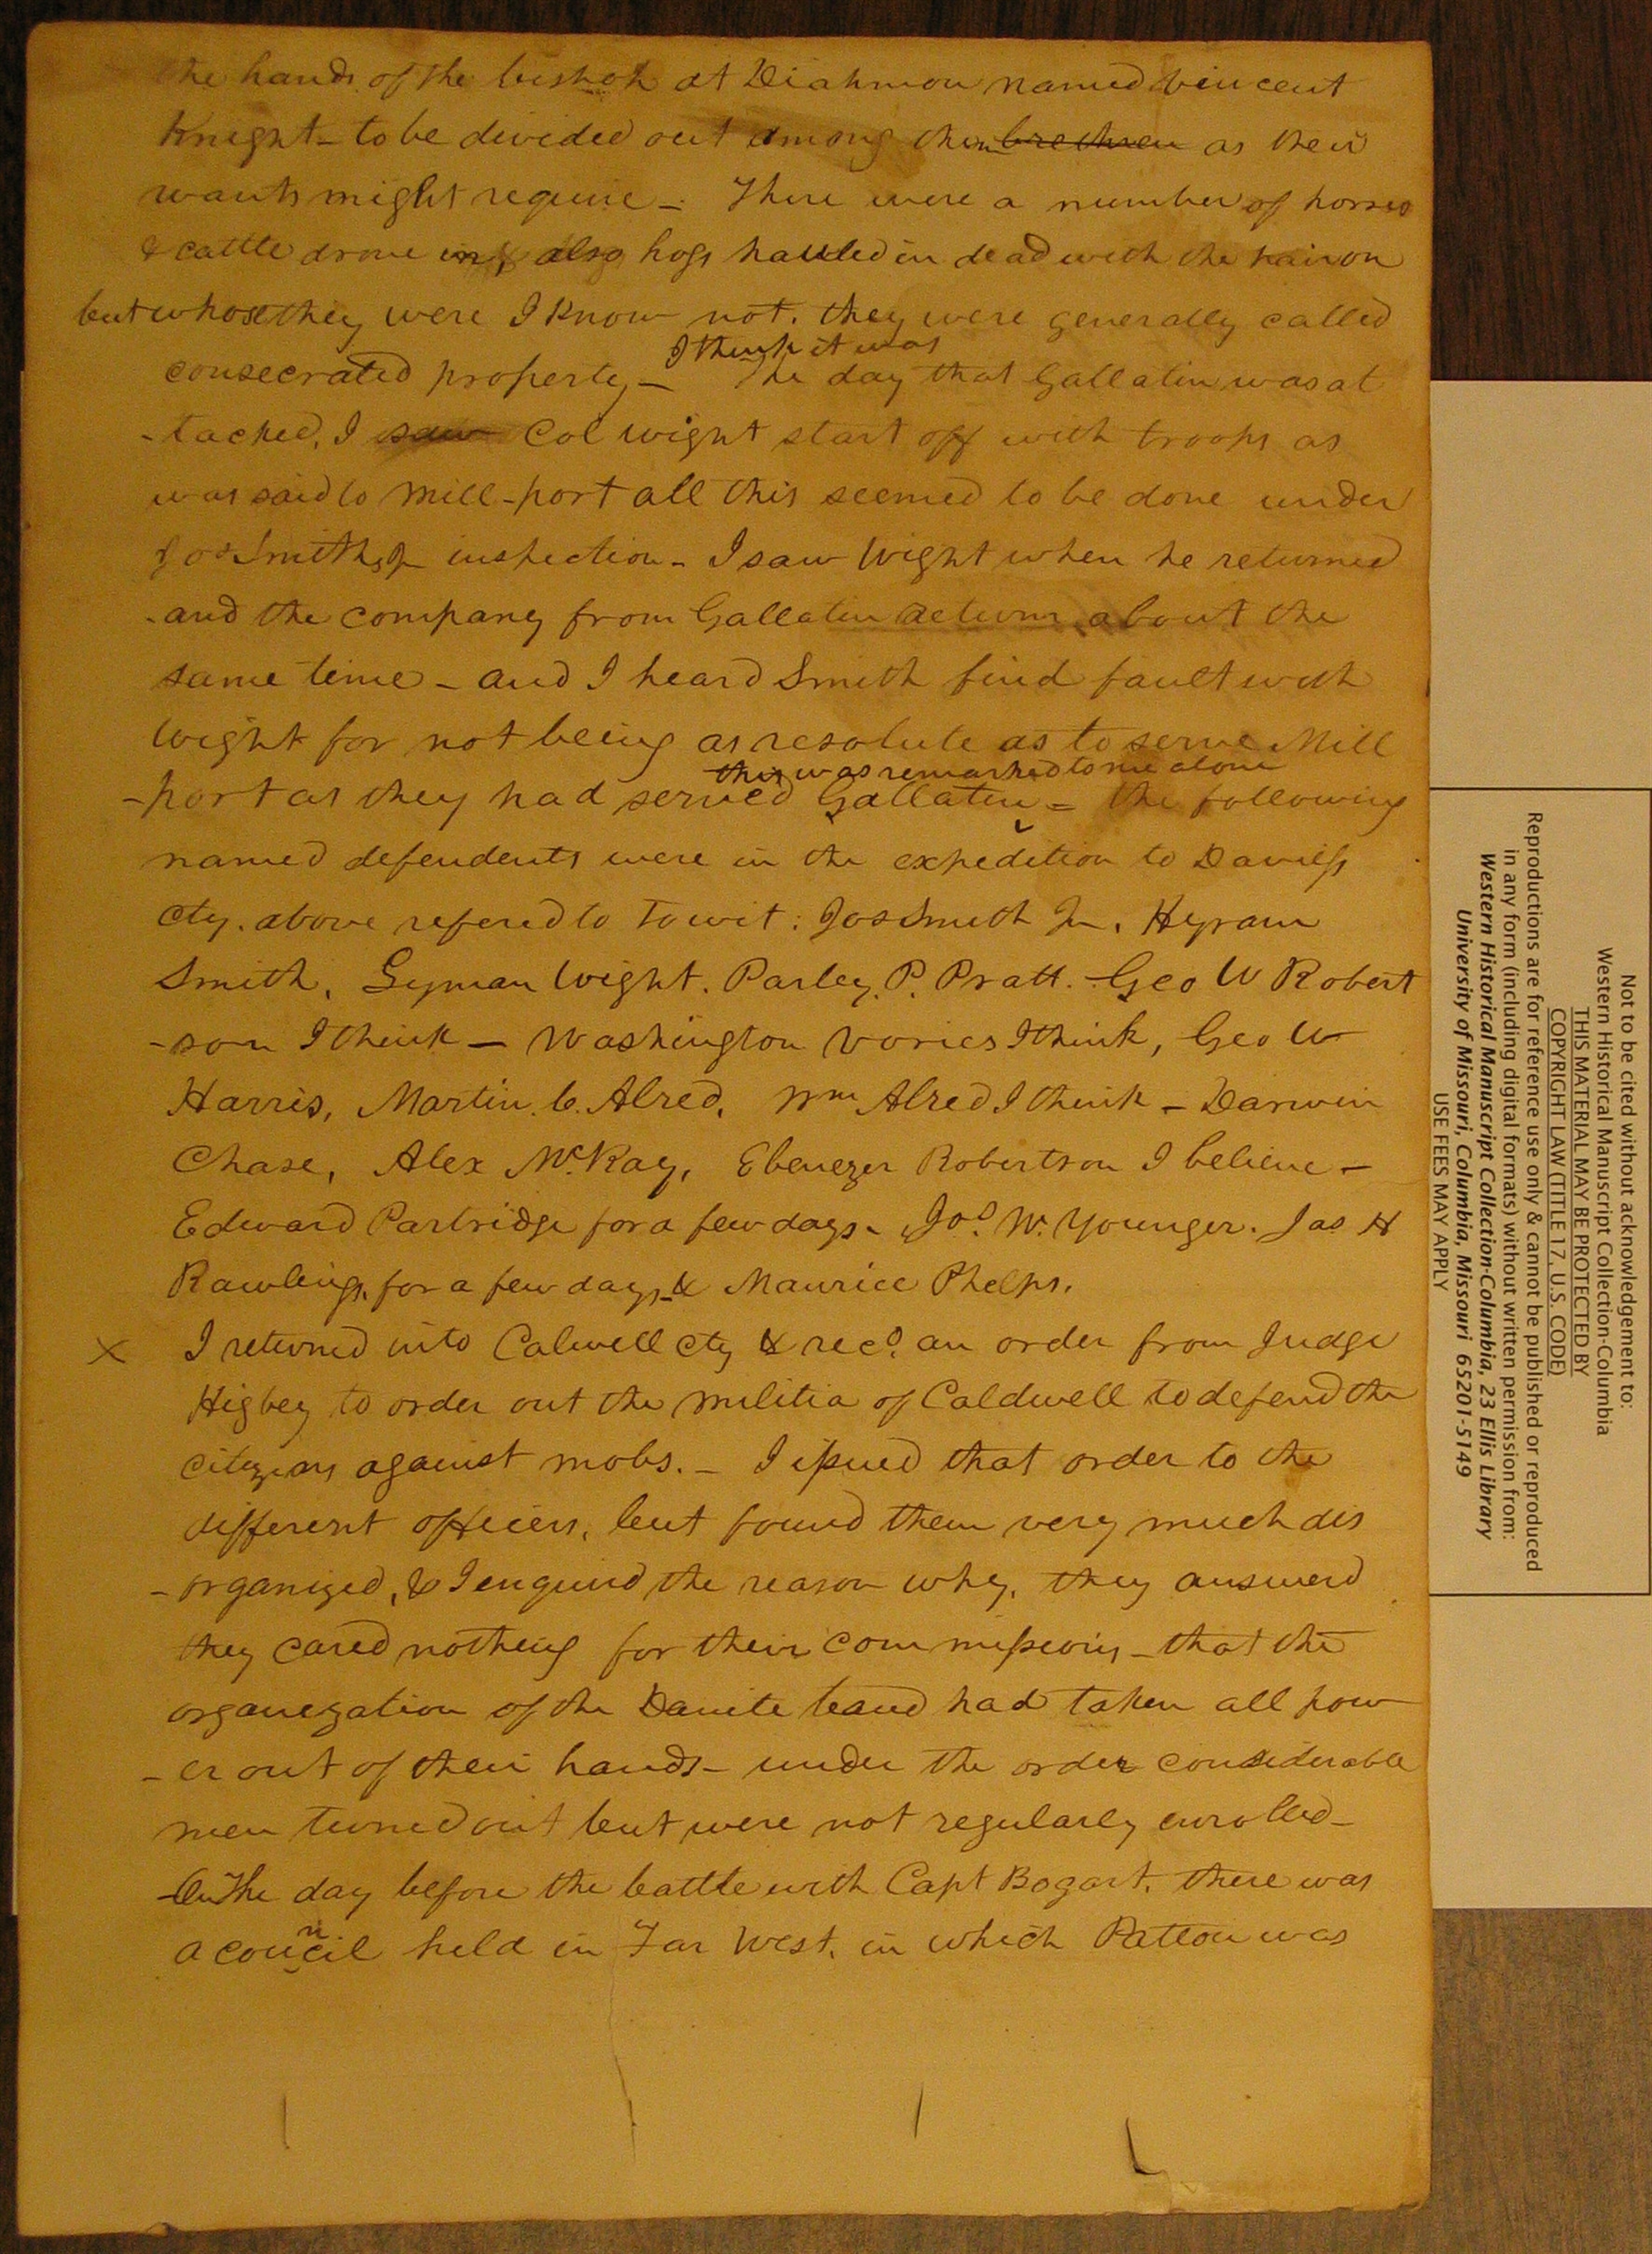 the hands of the bishop at Diahmon named Vincent
Knight - to be divided out among them brethren as their
wants might require - There were a number of horses
& cattle drove in, also hogs hauled in dead with the hair on
but whose they were I know not. they were generally called
I think it was
consecrated property - The day that Gallatin was at
-tacked, I saw Col Wight start off with troops as
was said to Mill-port all this seemed to be done under
Jos Smith, Jr inspection - I saw Wight when he returned
and the company from Gallatin return about the
same time - and I heard Smith find fault with
Wight for not being as resolute as to serve Mill
this was remarked to me alone
-port as they had served Gallatin - the following
named defendents were in the expedition to Daviess
cty. above refered to Towit: Jos Smith Jr. Hyram
Smith, Lyman Wight. Parley. P. Pratt. Geo W Robert
-son I think - Washington Vories I think, Geo W
Harris, Martin. C. Alred, Wm Alred I think - Darwin
Chase, Alex McRay, Ebenezer Robertson I believe -
Edward Partridge for a few days - Jos. W. Younger. Jas H
Rawlings, for a few days, & Maurice Phelps.
x I returned into Calwell cty & recd. an order from Judge
Higbey to order out the militia of Caldwell to defend the
citizens against mobs. - I issued that order to the
different officers, but found them very much dis
-organized, & I enquired the reason why, they answerd
they cared nothing for their commissions - that the
organezation of the Danite band had taken all pow
-er out of their hands - under the order considerable
men turned out but were not regularly enrolled -
On The day before the battle with Capt Bogart. there was
a council held in Far West, in which Patton was
Not to be cited without acknowledgement to:
Western Historical Manuscript Collection-Columbia
THIS MATERIAL MAY BE PROTECTED BY
COPYRIGHT LAW (TITLE 17, U.S. CODE)
Reproductions are for reference use only & cannot be published or reproduced
in any form (including digital formats) without written permission from:
Western Historical Manuscript Collection-Columbia, 23 Ellis Library
University of Missouri, Columbia, Missouri 65201-5149
USE FEES MAY APPLY